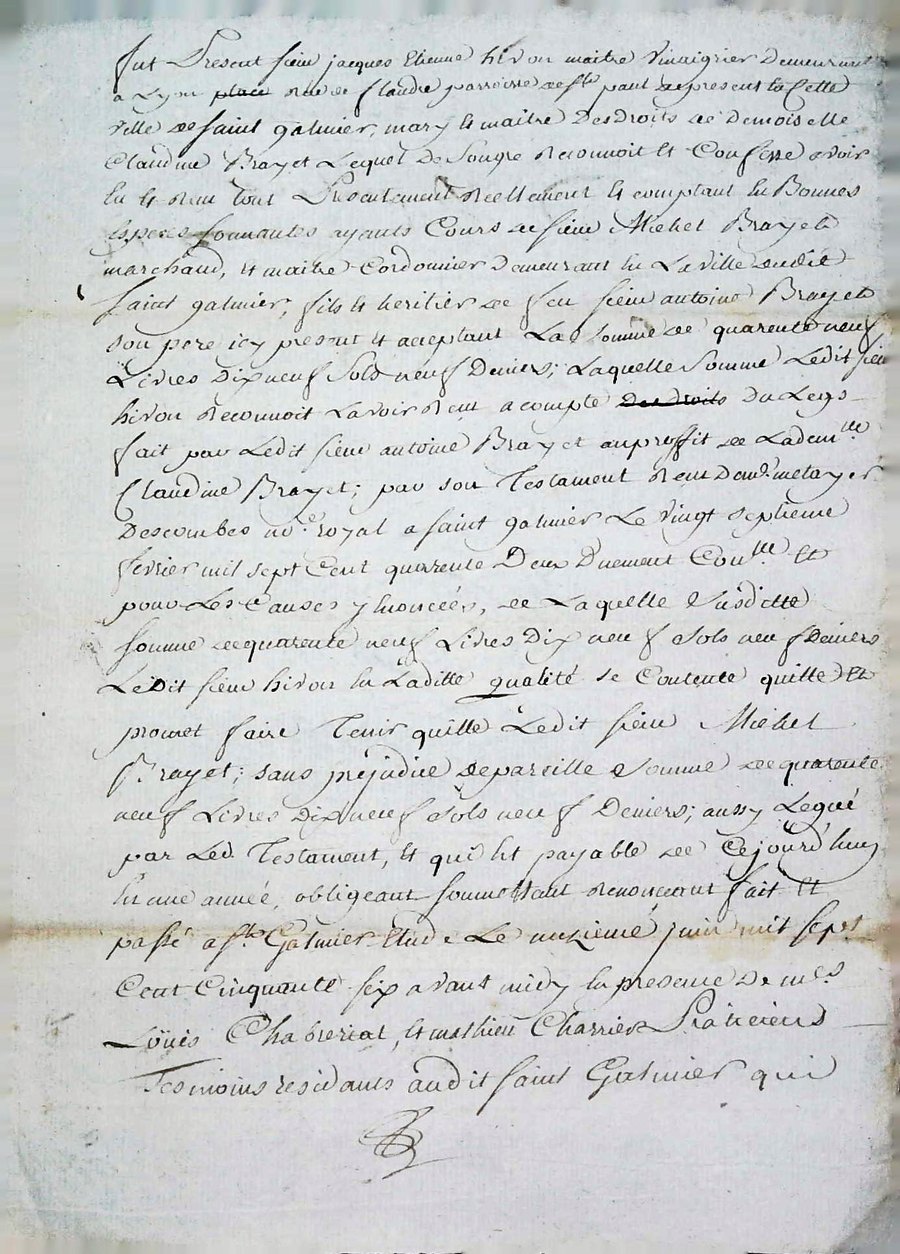 fut Present sieur jacques Etienne hivon maitre vinaigrier demeurant
a Lyon place rue de flandre parroisse de st paul de present en cette
ville de saint galmier, mary et maitre des droits de demoiselle
Claudine Brayet Lequel de Son gre reconnoit et Confesse avoir
eu et reçu tout Presentement reellement et comptant en Bonnes
especes sonnantes ayants Cours de sieur Michel Brayet
marchand, et maitre Cordonnier demeurant en La ville dudit
saint galmier, fils et heritier de feu sieur antoine Brayet
son pere icy present et acceptant La somme de quarente neuf
Livres Dix neuf Sols neuf Deniers; Laquelle Somme Ledit sieur
hivon reconnoit Lavoir reçu a compte des droits du Legs
fait par Ledit sieur antoine Brayet au proffit de Lade mlle
Claudine Brayet; par son Testament reçu metayer
Descombes no.re royal a saint galmier Le vingt septieme
fevrier mil sept Cent quarente Deux Duement Conllé Et
pour Les Causes y Enoncées, de Laquelle Susditte
somme de quarente neuf Livres Dix neuf Sols neuf Deniers
Ledit sieur hivon en Laditte qualité se Contente quitte Et
promet faire Tenir quitte Ledit sieur Michel
Brayet; sans prejudice de pareille Somme de quarente
neuf Livres Dix neuf Sols neuf Deniers; aussy Legué
par Led. Testament, et qui Est payable de Cejourd'huy
En une année, obligeant soumettant renonceant fait Et
passé a st Galmier Etude Le onzieme juin mil sept
Cent Cinquante six avant midy En presence de mes
Loüis Chabreriat, et mathieu Charrier Praticiens
Tesmoins residants audit saint Galmier qui